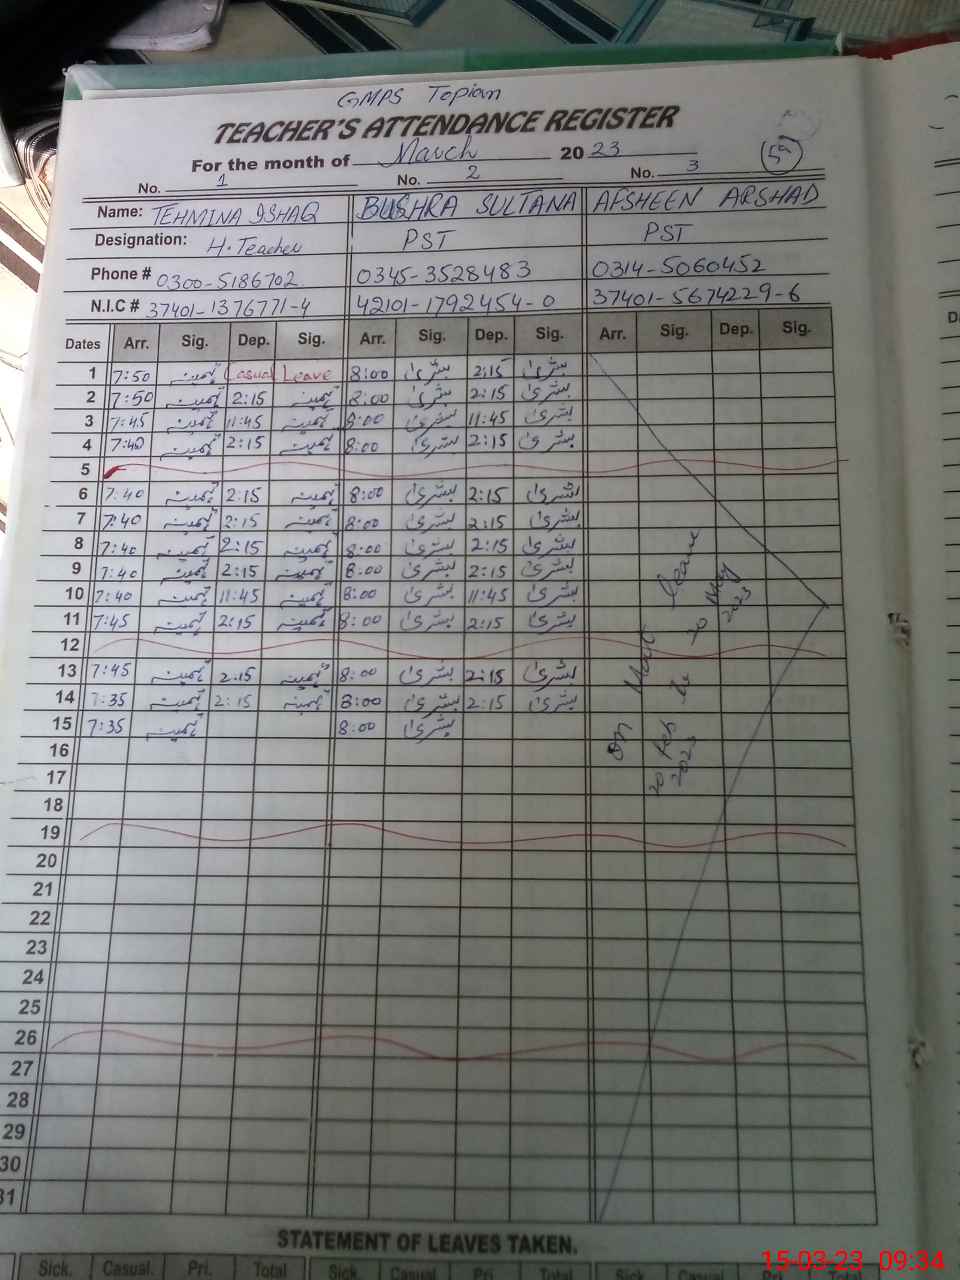 GMPS Topian
TEACHER'S ATTENDANCE REGISTER
For the month of March 2023
59
No. 1 No. 2 No. 3
Name: TEHMINA ISHAQ BUSHRA SULTANA AFSHEEN ARSHAD
Designation: H. Teacher PST PST
Phone # 0300-5186702 0345-3528483 0314-5060452
N.I.C # 37401-1376771-4 42101-1792454-0 37401-5674229-6
Dates Arr. Sig. Dep. Sig. Arr. Sig. Dep. Sig. Arr. Sig. Dep. Sig.
1 7:50 تہمینہ Casual Leave 8:00 بشریٰ 2:15 بشریٰ
2 7:50 تہمینہ 2:15 تہمینہ 8:00 بشریٰ 2:15 بشریٰ
3 7:45 تہمینہ 11:45 تہمینہ 8:00 بشریٰ 11:45 بشریٰ
4 7:40 تہمینہ 2:15 تہمینہ 8:00 بشریٰ 2:15 بشریٰ
5
6 7:40 تہمینہ 2:15 تہمینہ 8:00 بشریٰ 2:15 بشریٰ
7 7:40 تہمینہ 2:15 تہمینہ 8:00 بشریٰ 2:15 بشریٰ
8 7:40 تہمینہ 2:15 تہمینہ 8:00 بشریٰ 2:15 بشریٰ
9 7:40 تہمینہ 2:15 تہمینہ 8:00 بشریٰ 2:15 بشریٰ
10 7:40 تہمینہ 11:45 تہمینہ 8:00 بشریٰ 11:45 بشریٰ
11 7:45 تہمینہ 2:15 تہمینہ 8:00 بشریٰ 2:15 بشریٰ
12
13 7:45 تہمینہ 2:15 تہمینہ 8:00 بشریٰ 2:15 بشریٰ
14 7:35 تہمینہ 2:15 تہمینہ 8:00 بشریٰ 2:15 بشریٰ
15 7:35 تہمینہ 8:00 بشریٰ
16
17
18
19
20
21
22
23
24
25
26
27
28
29
30
31
On leave
20 Feb 20 May
2023 2023
STATEMENT OF LEAVES TAKEN.
Sick. Casual. Pri. Total Sick. Casual. Pri. Total Sick. Casual Pri. Total
15-03-23 09:34